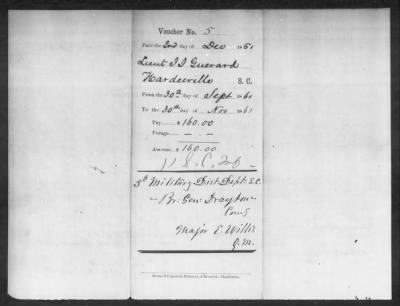 Voucher No. 5
Paid the 2nd day of Dec 1861
Lieut J J Guerard
Hardeeville S. C.
From the 30th day of Sept 1861
To the 30th day of Nov 1861
Pay, $160.00
Forage, — —
Amount, $160.00
11 S. C. Inf
5th Military Dist Dept. S.C.
Br. Genl Drayton
Comg
Major E. Willis
Q.M.